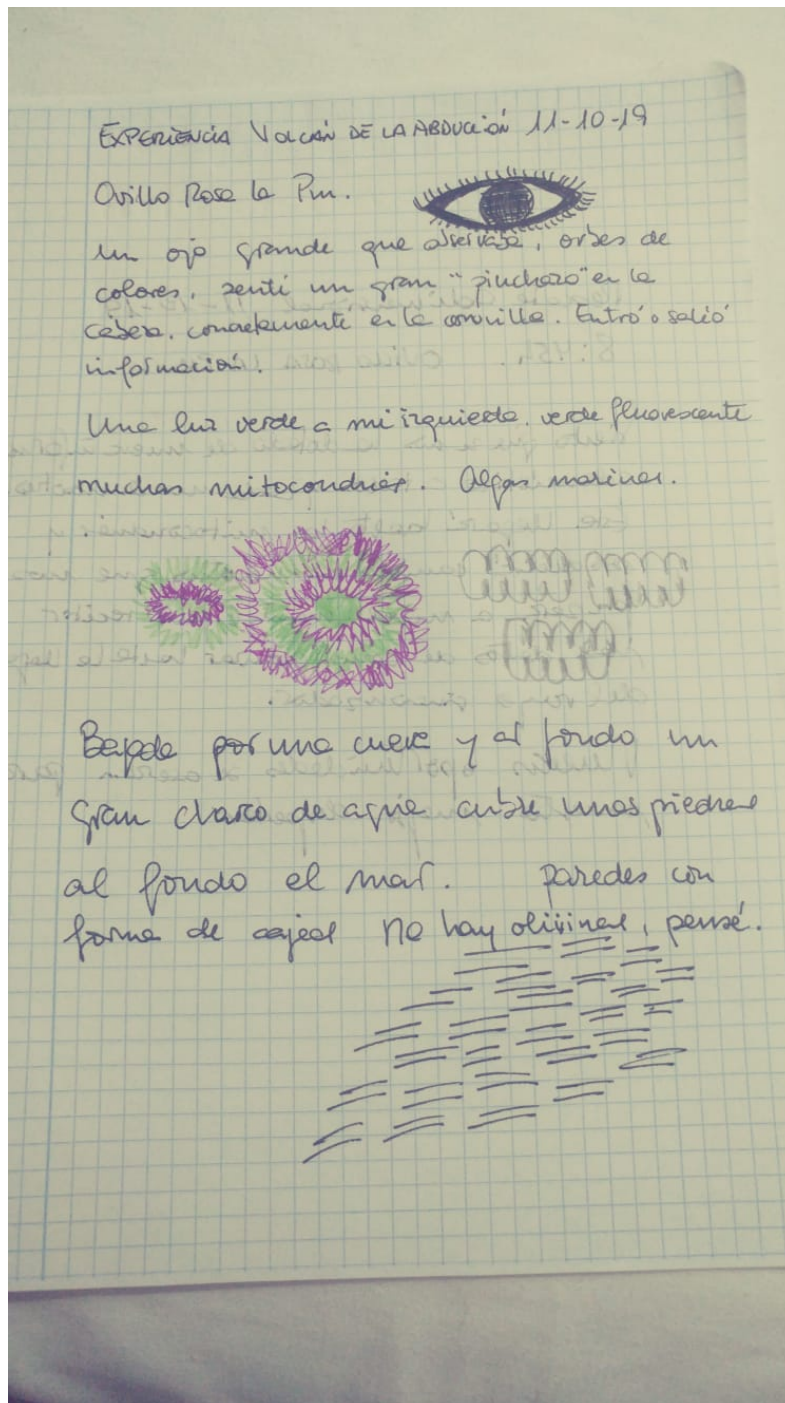 EXPERIENCIA VOLCÁN DE LA ABDUCIÓN 11-10-19
Ovillo Rosa la Pm.
Un ojo grande que observaba, orbes de
colores, sentí un gran "pinchazo" en la
cabeza, concretamente en la coronilla. Entró o salió
información.
Una luz verde a mi izquierda. verde fluorescente
muchas mitocondrias. Algas marinas.
Bajada por una cueva y al fondo un
gran charco de agua cubre unas piedras
al fondo el mar. paredes con
forma de No hay olivinas, pensé.